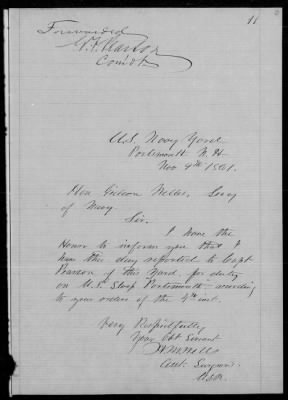 11
Forwarded
G. F. Pearson
Comdt.
U.S. Navy Yard
Portsmouth N.H.
Nov 9th 1861.
Hon Gideon Welles, Secy
of Navy
Sir.
I have the
Honor to inform you that I
have this day reported to Capt
Pearson of this Yard, for duty
on U.S. Sloop Portsmouth according
to your orders of the 4th inst.
Very Respectfully
Your Obt Servant
Asst. Surgeon
U.S.N.